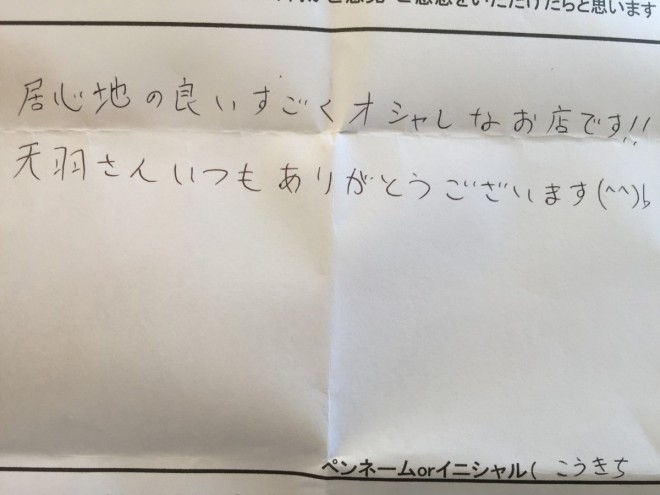 ご感想をいただけたらと思います
居心地の良いすごくオシャレなお店です!!
天羽さんいつもありがとうございます(^^)b
ペンネームorイニシャル( こうきち